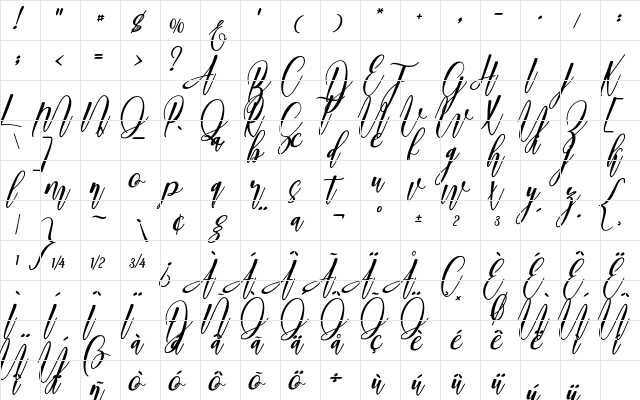 ! " # $ % & ' ( ) * + , - . / :
; < = > ? A B C D E T G H I J X
L M N O P Q R S T U V W X Y Z [
\ ] _ a b c d e f g h i j k
l m n o p q r s t u v w x y z {
| } ~ ¡ ¢ § ª ¬ ° ± 2 3 ,
1 1/4 1/2 3/4 ¿ À Á Â Ã Ä Å Ç È É Ê Ë
Ì Í Î Ï Ð Ñ Ò Ó Ô Õ Ö × Ø Ù Ú Û
Ü Ý ß à á â ã ä å ç è é ê ë ì í
î ï ñ ò ó ô õ ö ÷ ù ú û ü ý ÿ